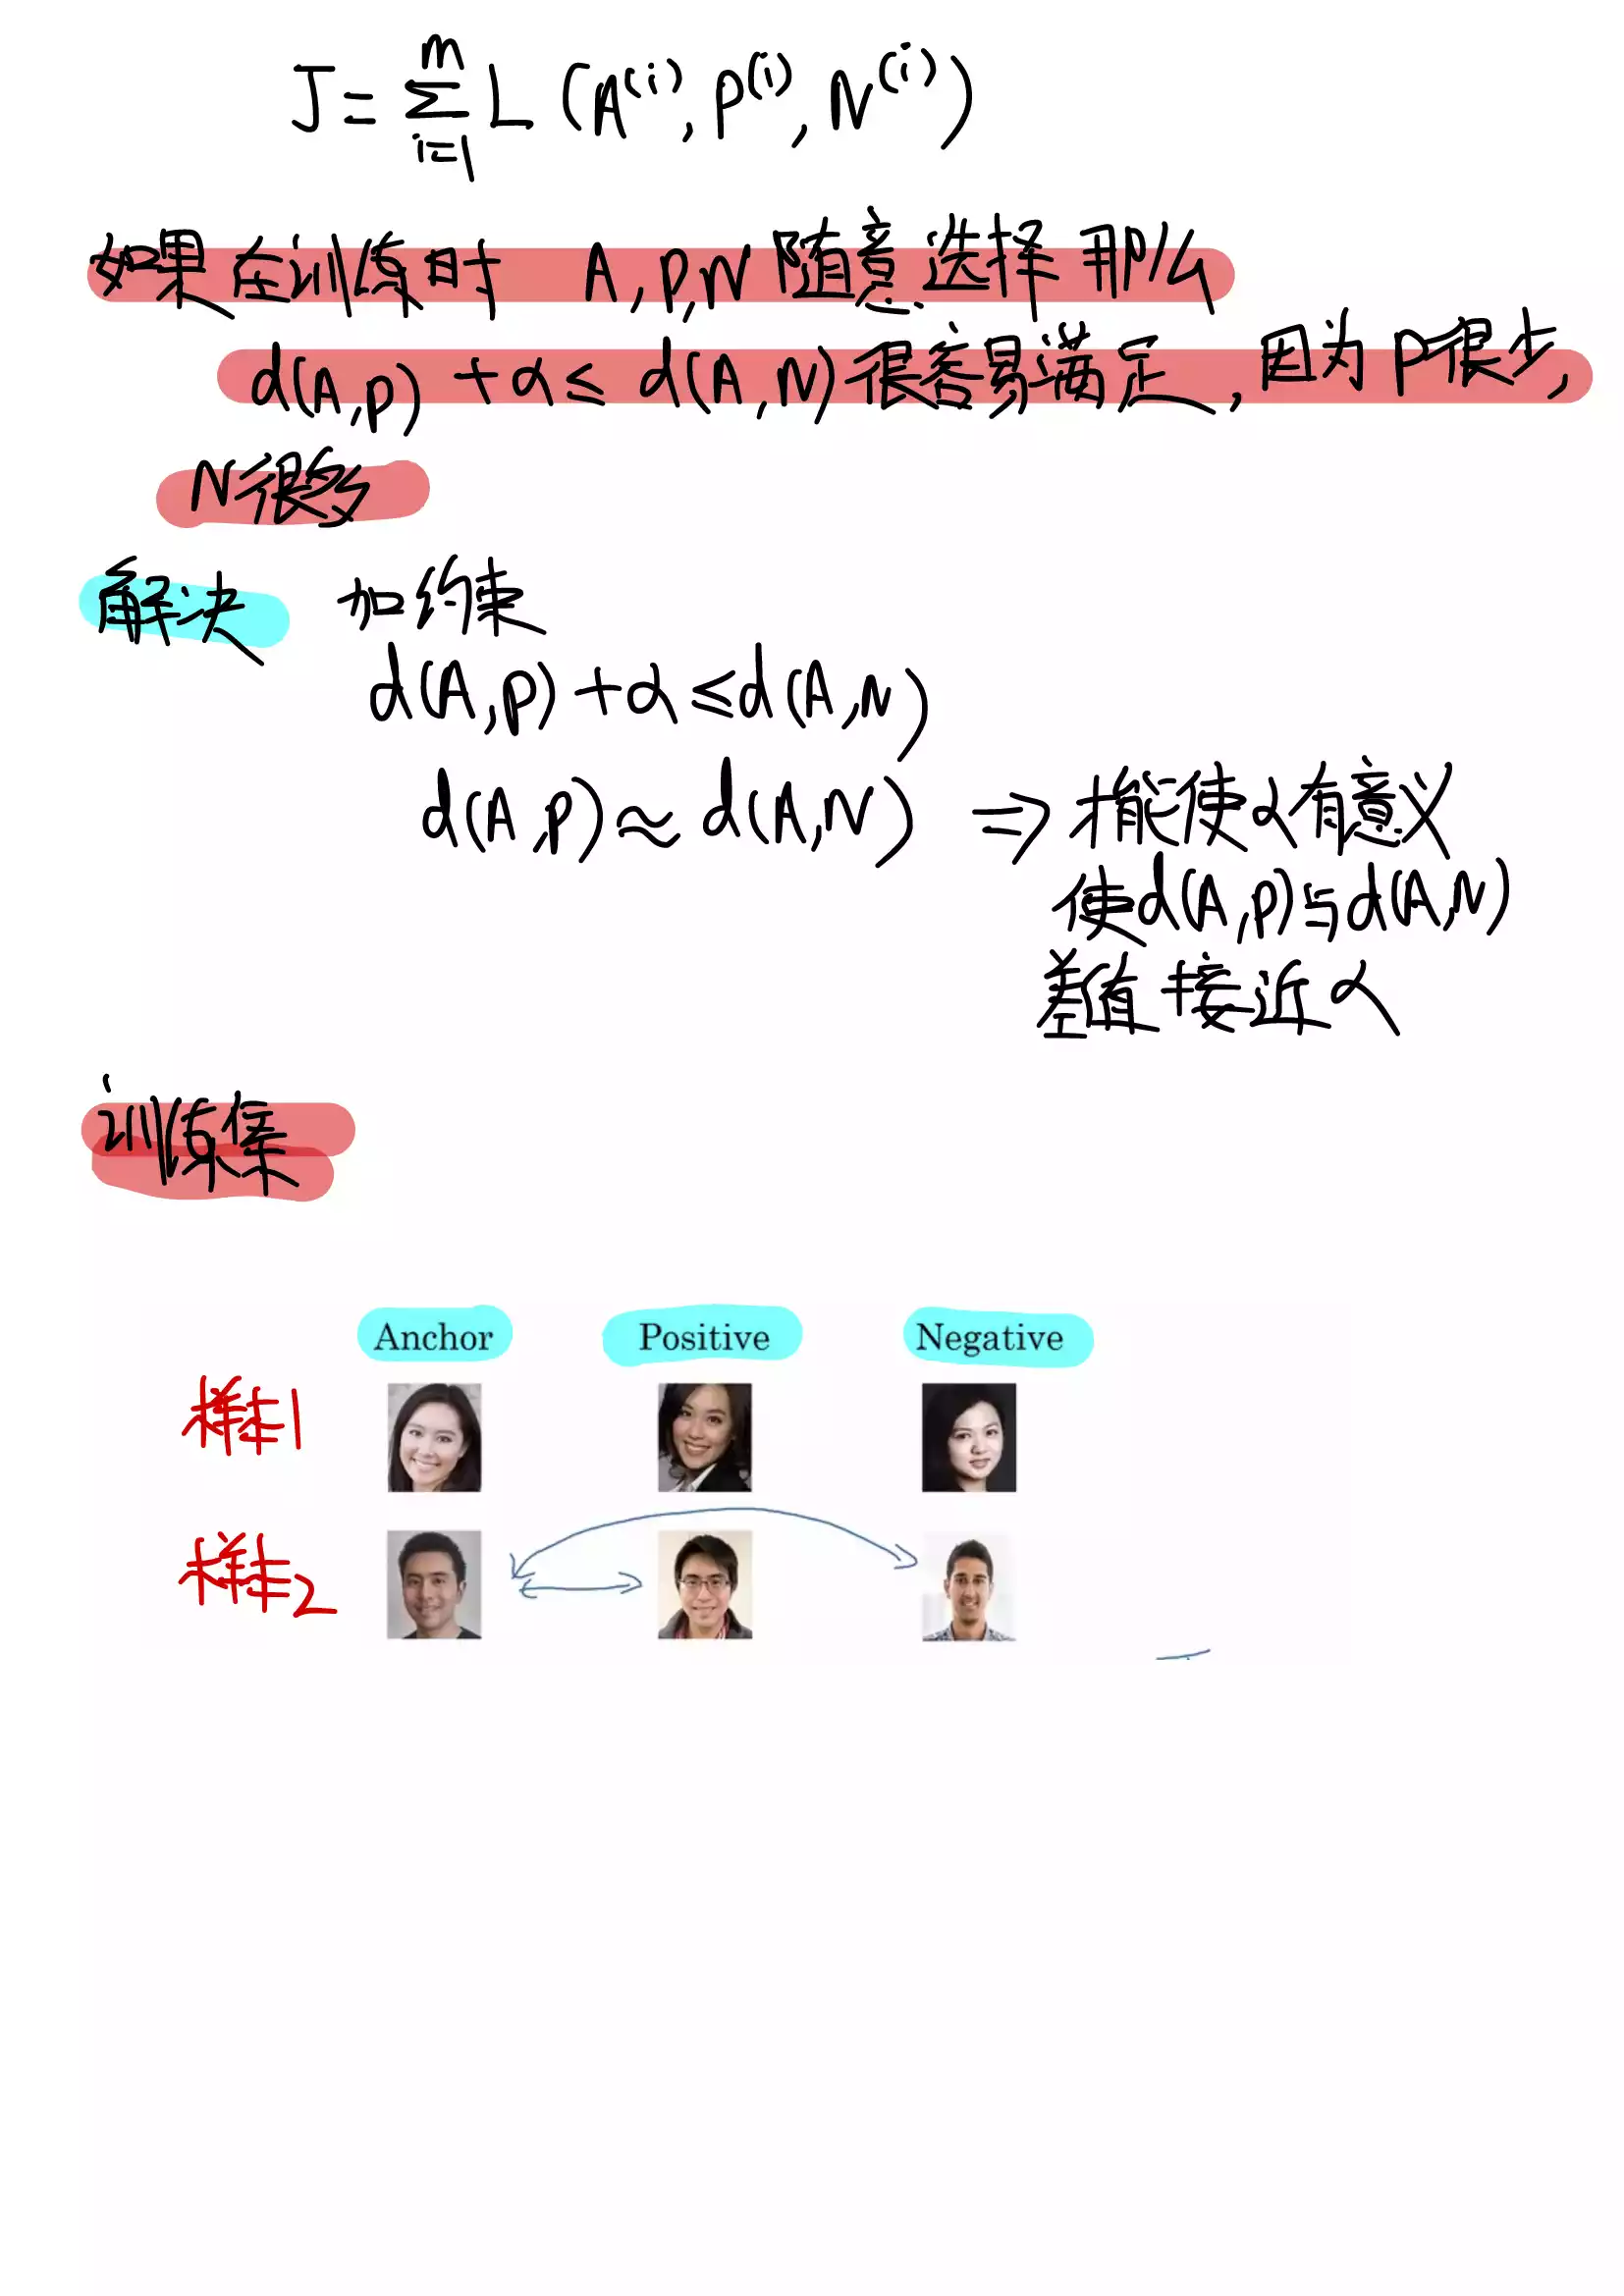 J = \sum_{i=1}^{m} L (A^{(i)}, P^{(i)}, N^{(i)})
如果在训练时 A,P,N 随意选择 那么
d(A,P) + α ≤ d(A,N) 很容易满足,因为P很少,
N很多
解决 加约束
d(A,P) + α ≤ d(A,N)
d(A,P) ≈ d(A,N) ⇒ 才能使α有意义
使d(A,P)与d(A,N)
差值接近α
训练集
Anchor Positive Negative
样本1
样本2